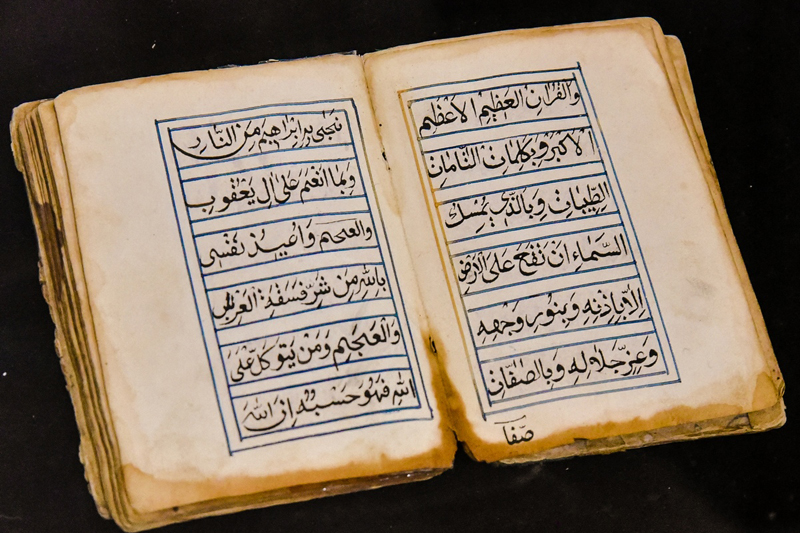 والقران العظيم الاعظم
الاكبر وبكلمات التامات
الطيبات وبالذي يمسك
السماء ان تقع على الارض
الا باذنه وبنور وجهه
وعز جلاله وبالصفات
صفا
نجى بر ابراهيم من النار
وبما انعم على ال يعقوب
والعجم واعيذ نفسى
بالله من شر فسقه العرب
والعجم ومن يتوكل على
الله فهو حسبه ان الله